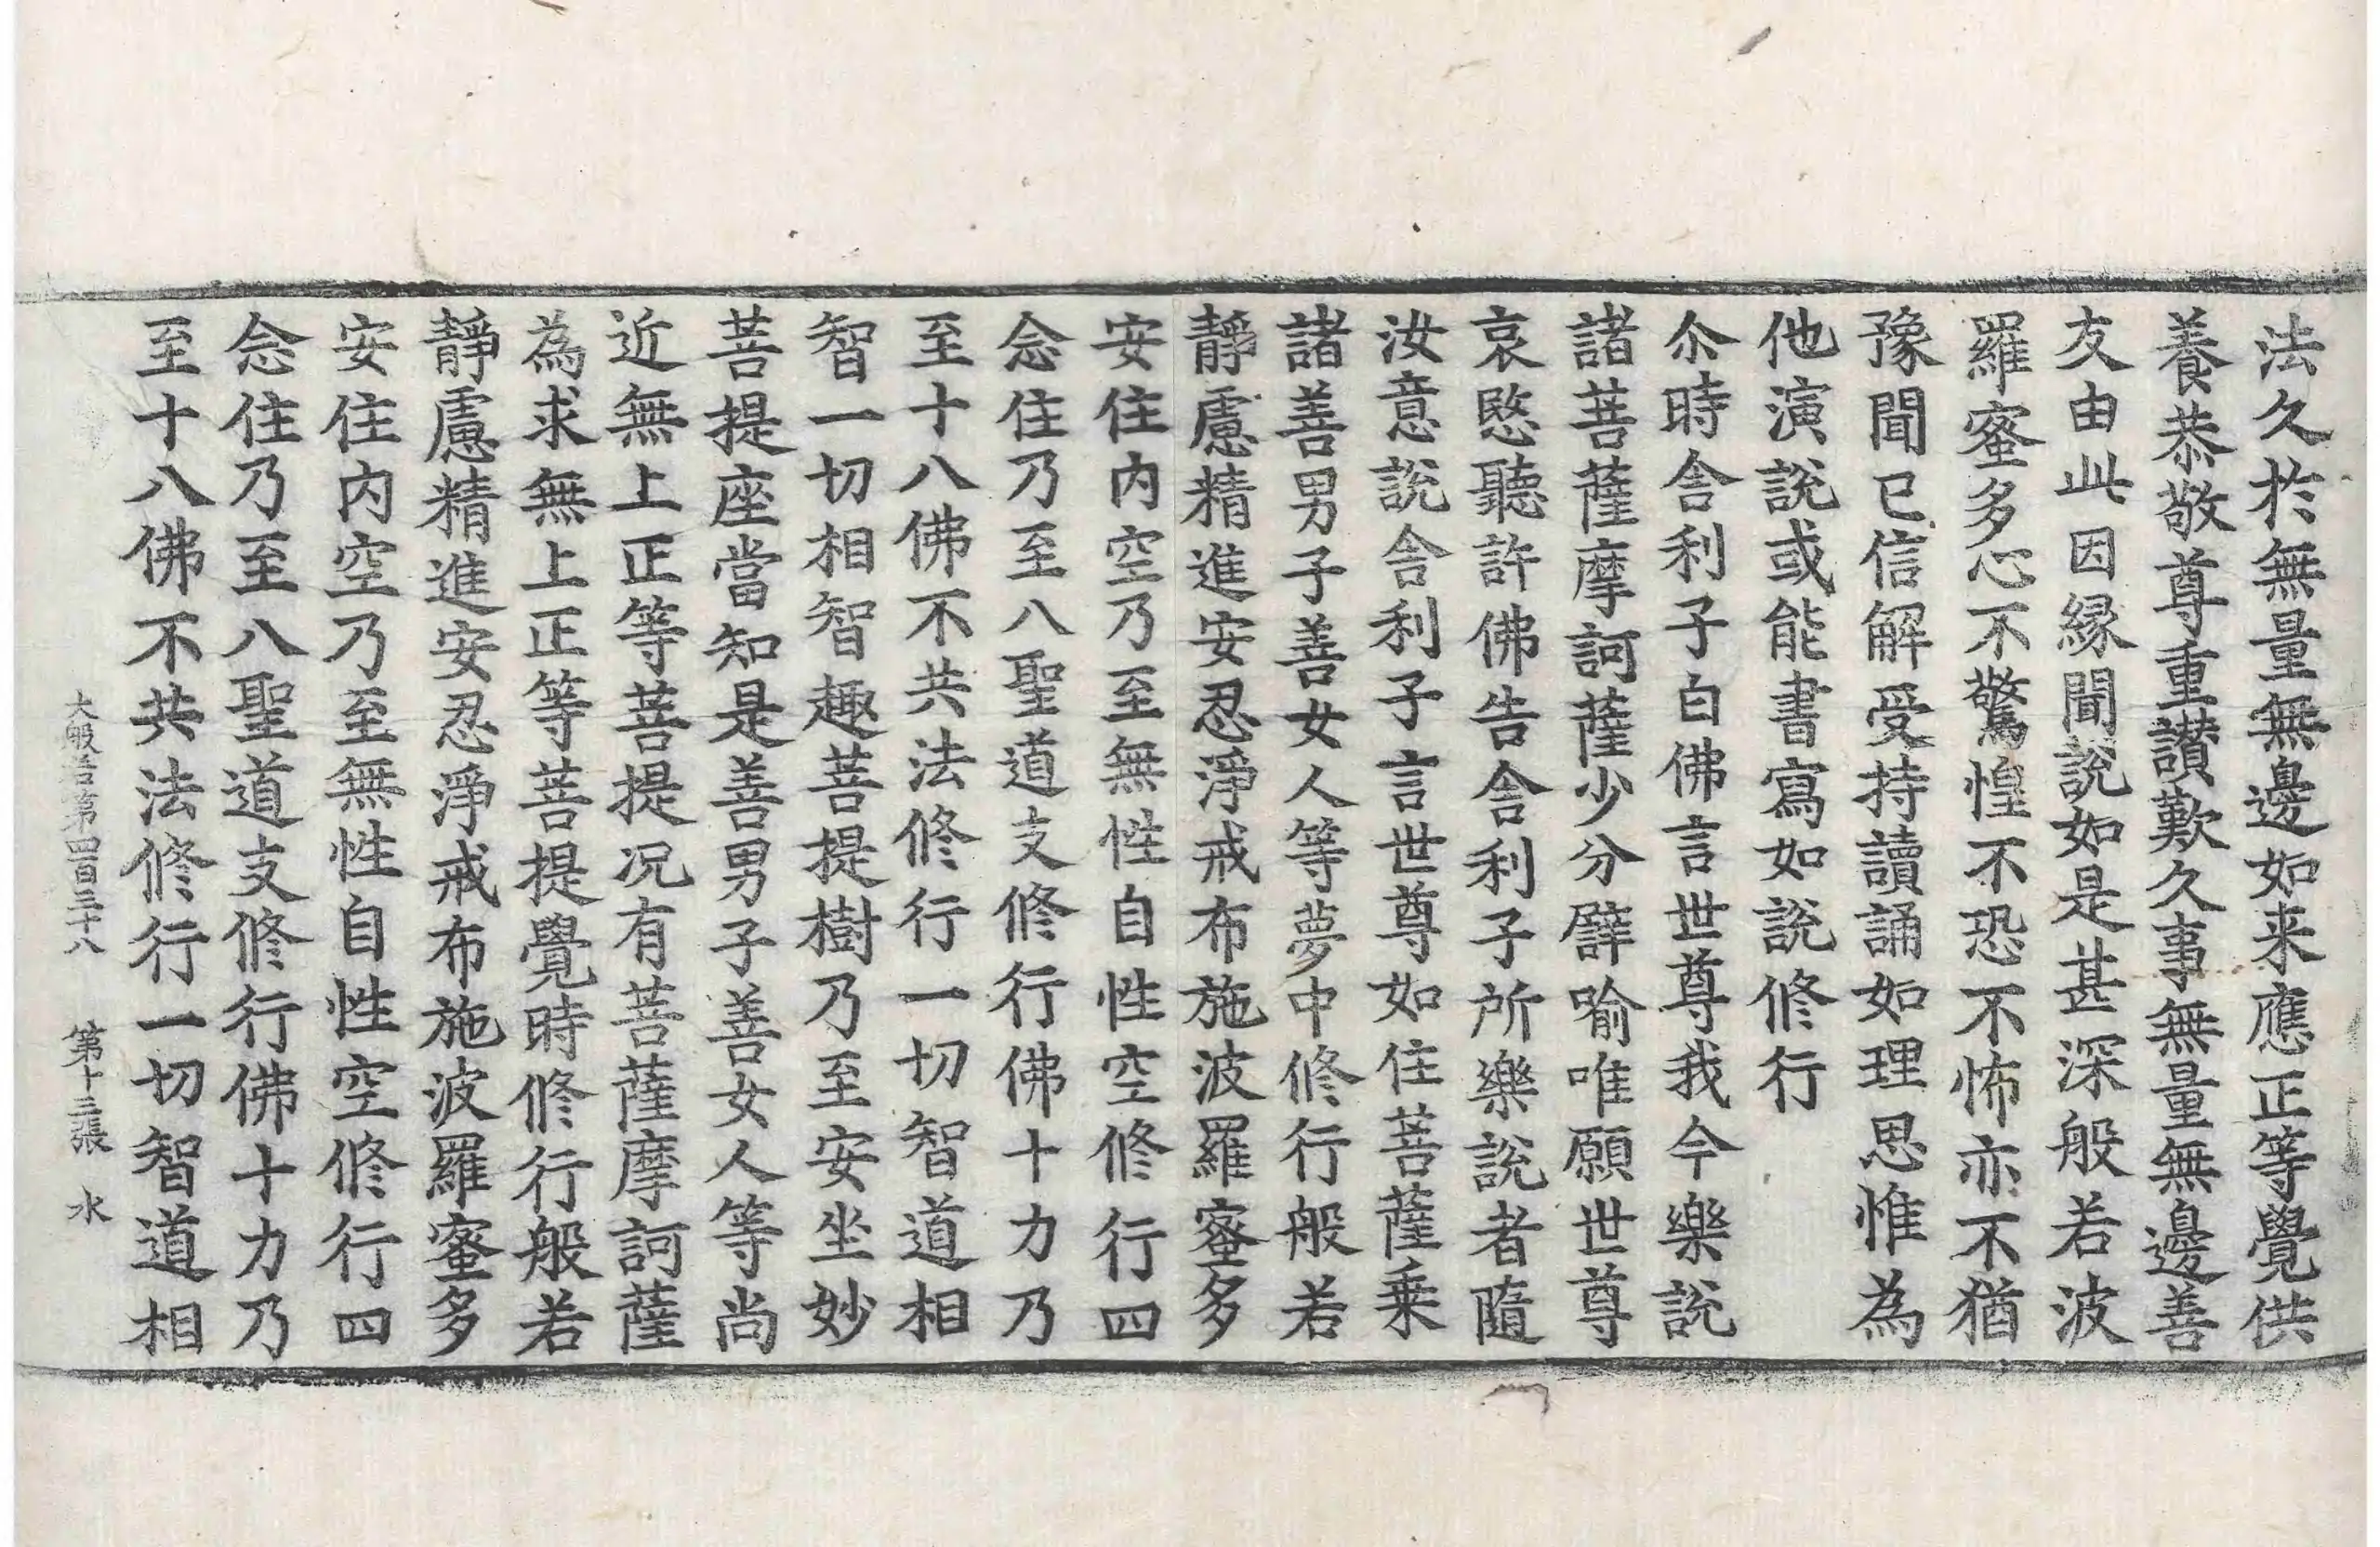 法久於無量無邊如来應正等覺供
養恭敬尊重讃歎久事無量無邊善
友由此因縁聞說如是甚深般若波
羅蜜多心不驚惶不恐不怖亦不猶
豫聞已信解受持讀誦如理思惟為
他演說或能書寫如說修行
尒時舎利子白佛言世尊我今樂說
諸菩薩摩訶薩少分譬喻唯願世尊
哀愍聽許佛告舎利子所樂說者隨
汝意說舎利子言世尊如住菩薩乗
諸善男子善女人等夢中修行般若
靜慮精進安忍淨戒布施波羅蜜多
安住内空乃至無性自性空修行四
念住乃至八聖道支修行佛十力乃
至十八佛不共法修行一切智道相
智一切相智趣菩提樹乃至安坐妙
菩提座當知是善男子善女人等尚
近無上正等菩提况有菩薩摩訶薩
為求無上正等菩提覺時修行般若
靜慮精進安忍淨戒布施波羅蜜多
安住内空乃至無性自性空修行四
念住乃至八聖道支修行佛十力乃
至十八佛不共法修行一切智道相
大般若第四百三十八 第十三張 水